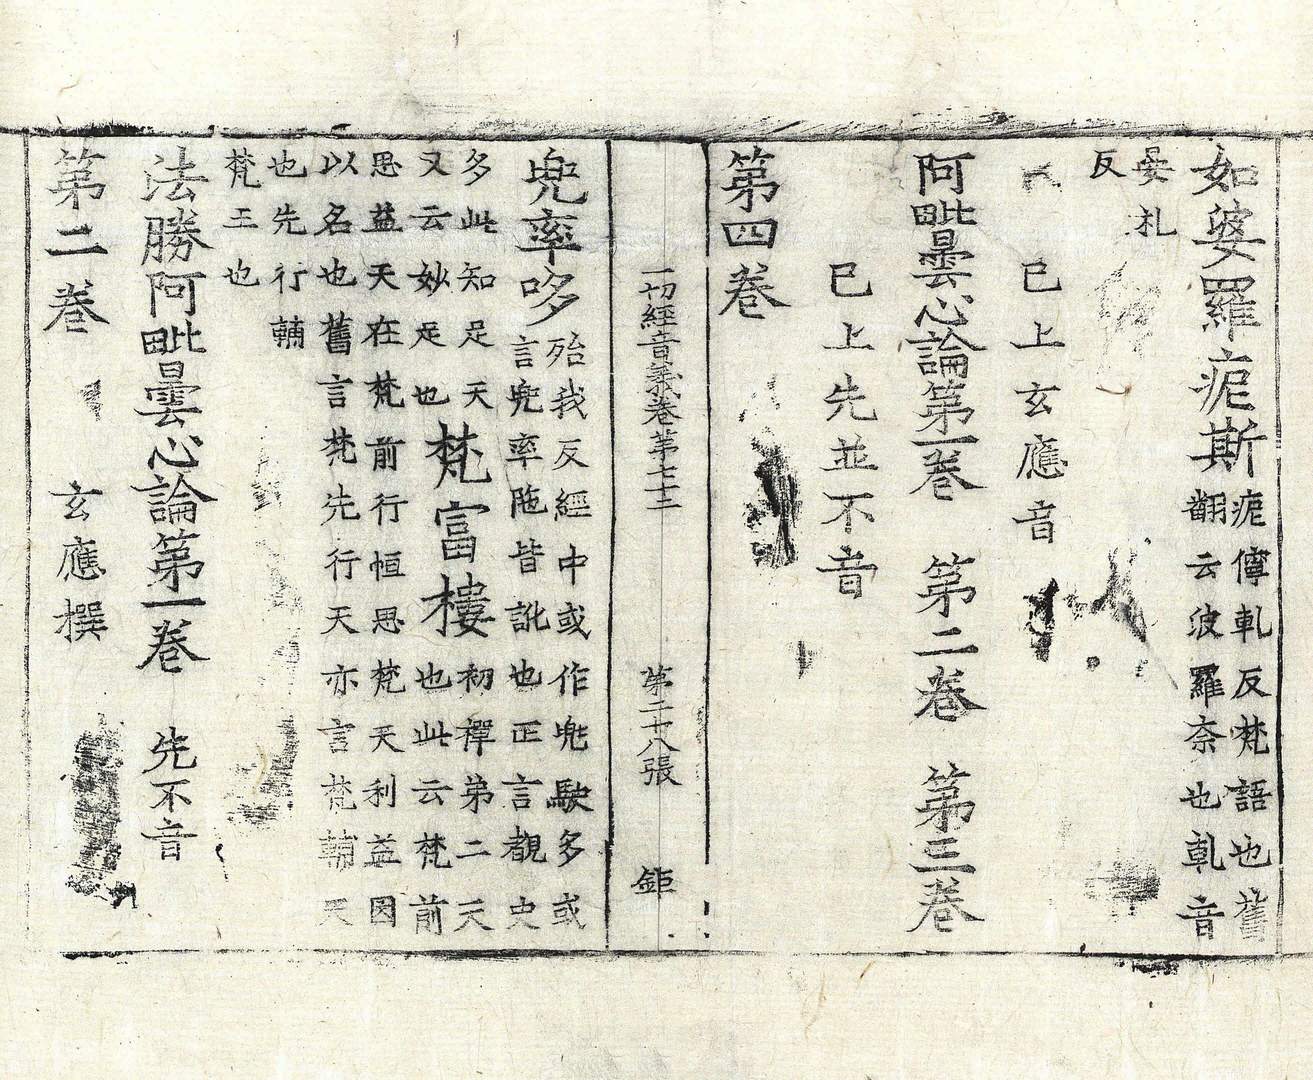 如婆羅痆斯痆儜軋反梵語也舊
翻云波羅奈也軋音
晏札
反
已上玄應音
阿毗曇心論第一卷　第二卷　第三卷
已上先並不音
第四卷
一切經音義卷第七十二　第二十八張　鉅
兜率哆殆我反經中或作兜駛多或
言兜率陁皆訛也正言覩史
多此知足天
又云妙足也
梵富樓初禪第二天
也此云梵前
思益天在梵前行恒思梵天利益因
以名也舊言梵先行天亦言梵輔天
也先行輔
梵王也
法勝阿毗曇心論第一卷　先不音
第二卷　玄應撰